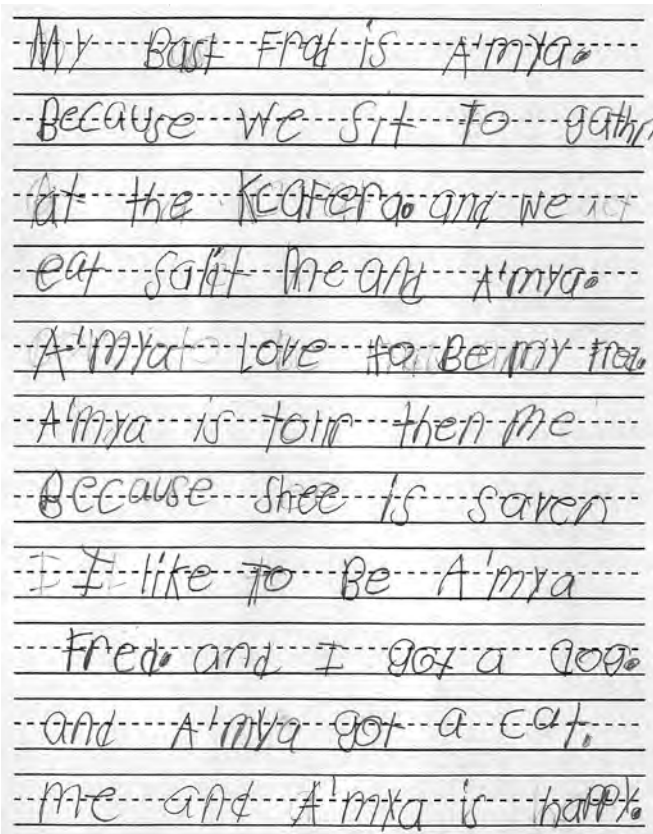 My Bast Frad is A'mya.
Because we sit to gathr
at the Kcafera. and we
eat salit me and A'mya.
A'mya love to Be my fred.
A'mya is tolr then me
Because shee is saven
I like to Be A'mya
Fred. and I got a dog.
and A'mya got a cat.
me and A'mya is happy.